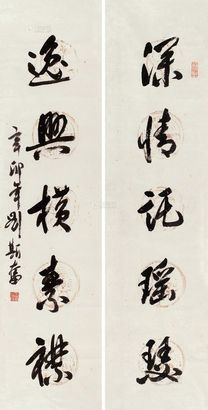 深情託瑶瑟
逸興横素襟
辛卯年劉斯奮